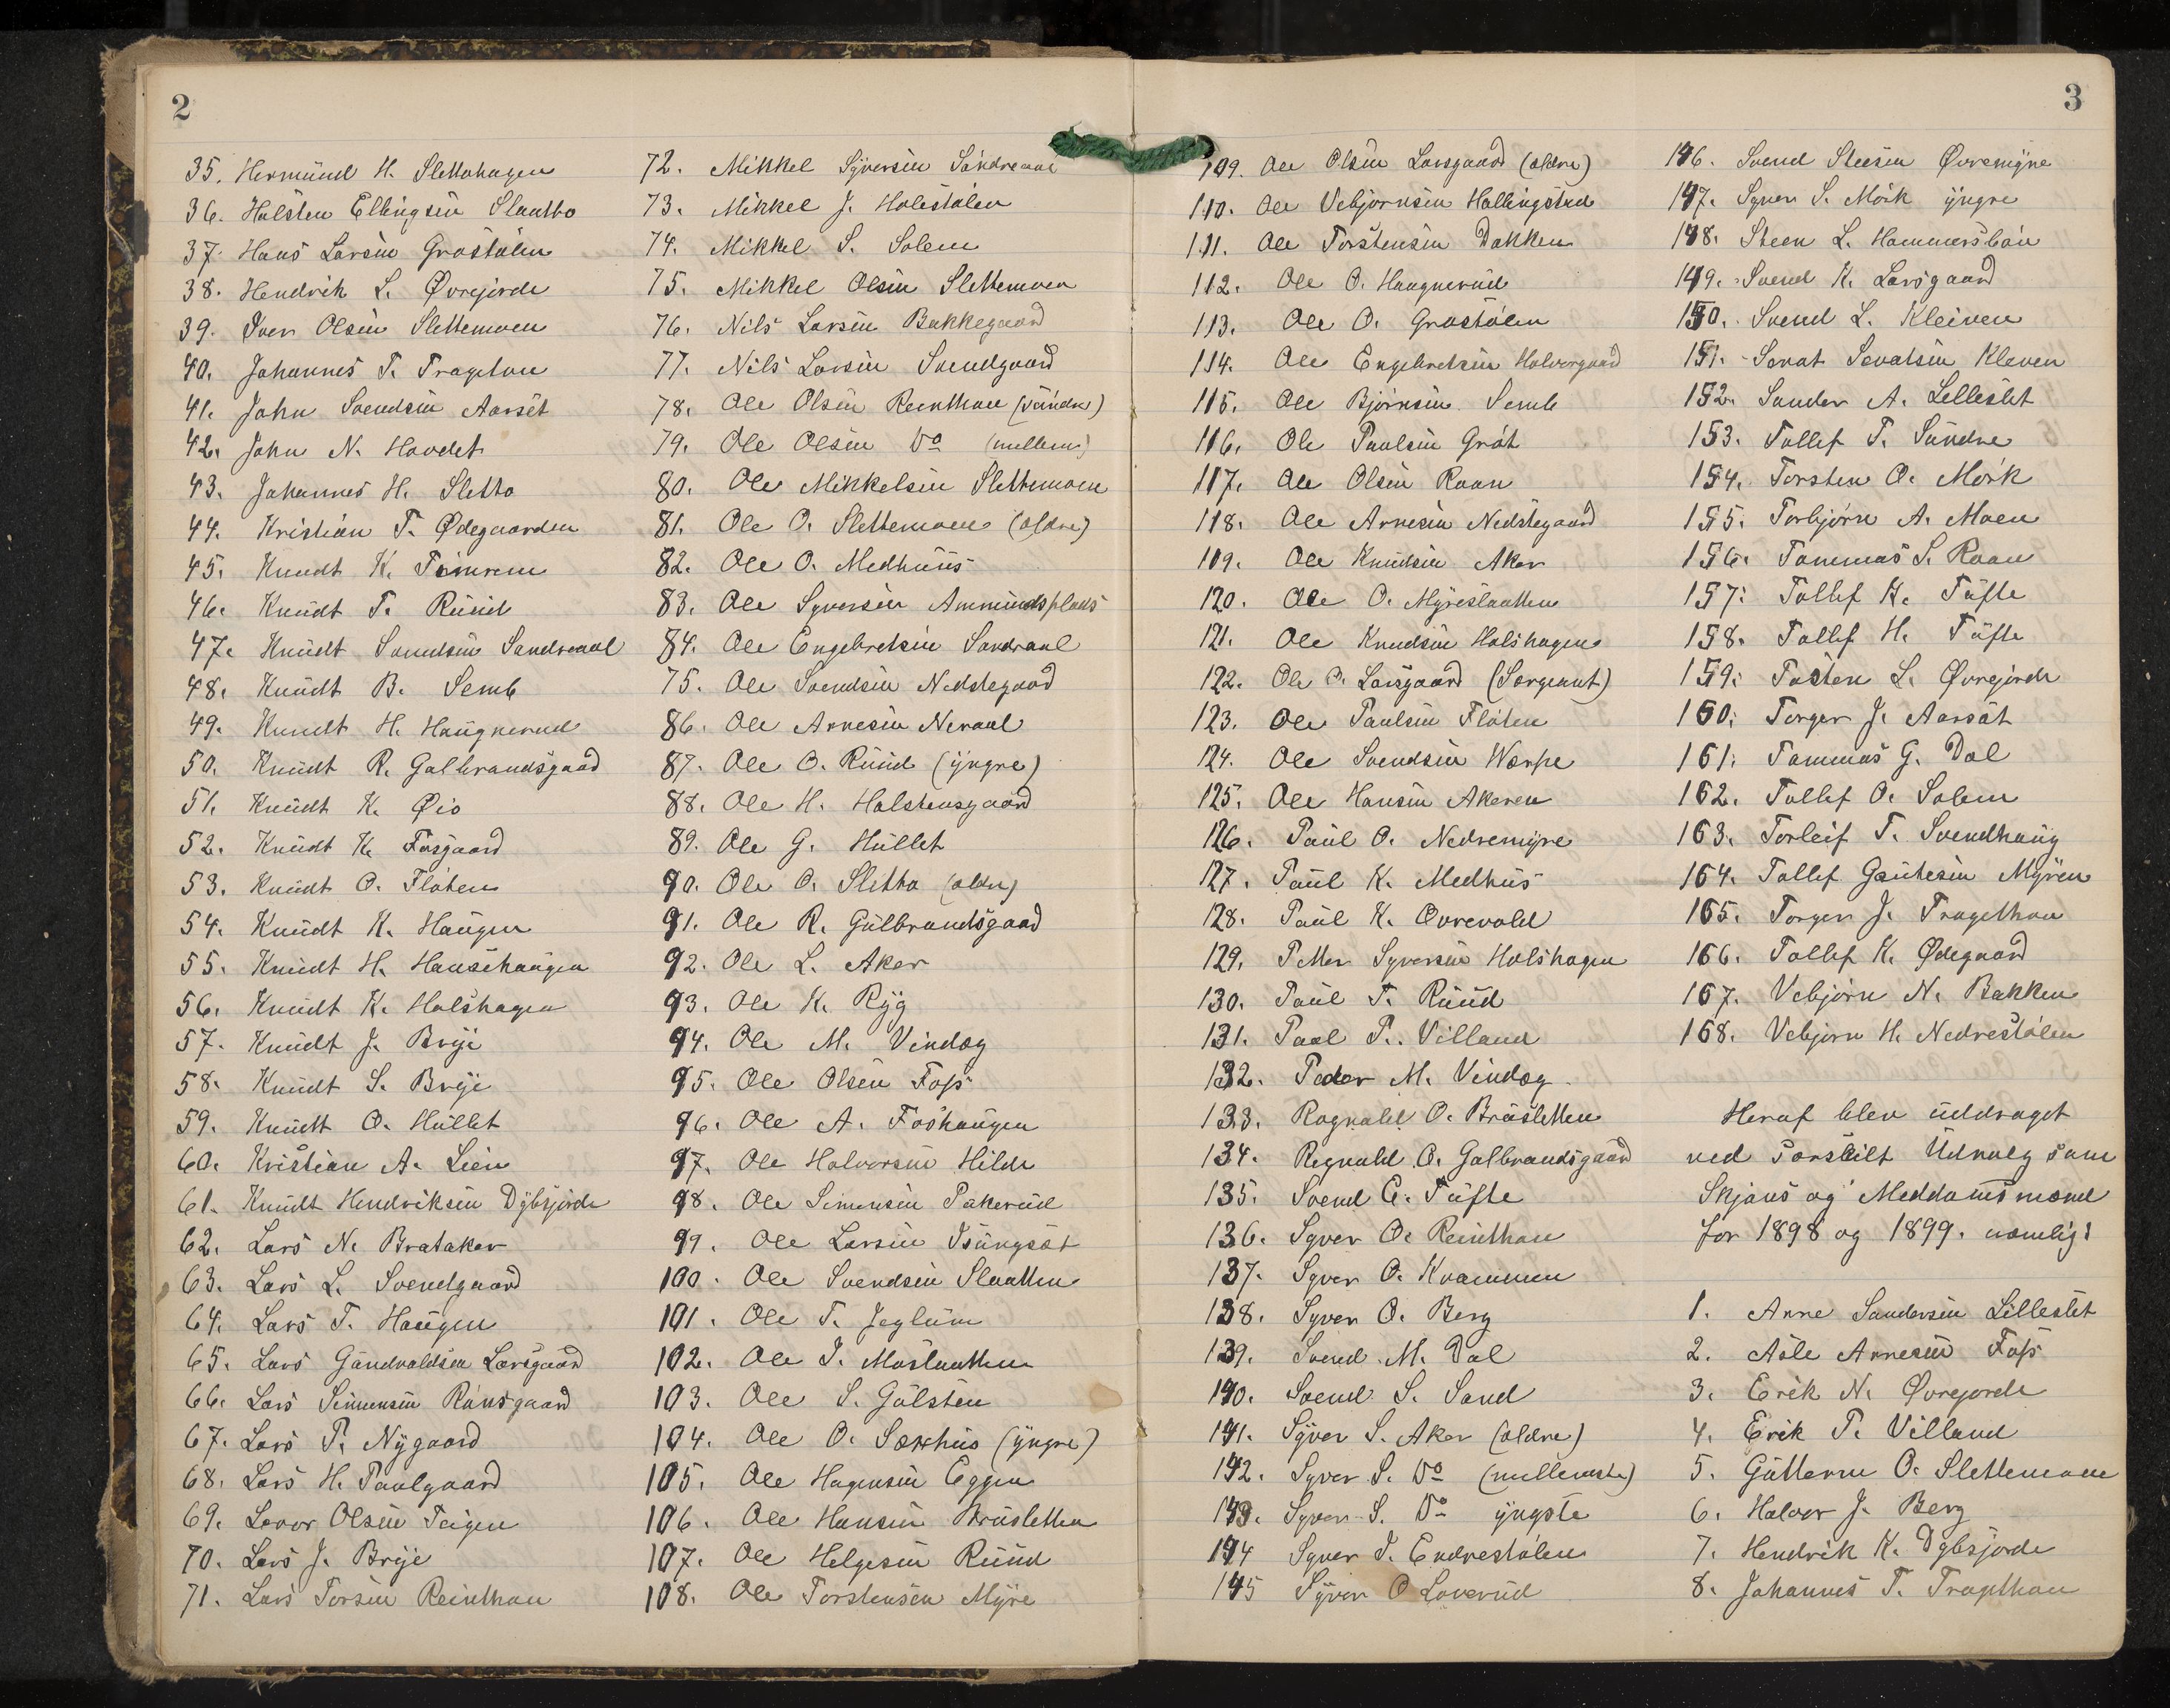 2
35. Hermund H. Slettohagen
36. Halsten Ellingsen Slaatto
37. Hans Larsen Grøstølen
38. Hendrik L. Øvrejorde
39. Iver Olsen Slettemoen
40. Johannes T. Trageton
41. John Svendsen Aarset
42. John N. Hovdet
43. Johannes H. Sletto
44. Kristian T. Ødegaarden
45. Knudt K.
46. Knudt T. Ruud
47. Knudt Svendsen Sandreaal
48. Knudt B. Semb
49. Knudt H. Haugnerud
50. Knudt R. Gulbrandsgaard
51. Knudt K. Øio
52. Knudt K. Fosgaard
53. Knudt O. Fløten
54. Knudt K. Haugen
55. Knudt H. Hansehaugen
56. Knudt K. Halshagen
57. Knudt J. Brye
58. Knudt S. Brye
59. Knudt O. Hullet
60. Kristian A. Lien
61. Knudt Hendriksen Dybsjorde
62. Lars N. Brataker
63. Lars L. Svendgaard
64. Lars T. Haugen
65. Lars Gundvaldsen Larsgaard
66. Lars Simensen Rønsgaard
67. Lars P. Nygaard
68. Lars H. Paulgaard
69. Levor Olsen Teigen
70. Lars J. Brye
71. Lars Torsen Reinthon
72. Mikkel Syversen Søndreaal
73. Mikkel J. Holestølen
74. Mikkel S. Solem
75. Mikkel Olsen Slettemoen
76. Nils Larsen Bakkegaard
77. Nils Larsen Svendgaard
78. Ole Olsen Reinthon (søndre)
79. Ole Olsen Do (mellem)
80. Ole Mikkelsen Slettemoen
81. Ole O. Slettemoen (ældre)
82. Ole O. Medhuus
83. Ole Syversen Ammundsplads
84. Ole Engebretsen Sandraal
75. Ole Svendsen Nedstegaard
86. Ole Arnesen Neraal
87. Ole O. Ruud (yngre)
88. Ole H. Halstensgaard
89. Ole G. Hullet
90. Ole O. Sletto (ældre)
91. Ole R. Gulbrandsgaard
92. Ole L. Aker
93. Ole K. Ryg
94. Ole M. Vindeg
95. Ole Olsen Foss
96. Ole A. Foshaugen
97. Ole Halvorsen Hilde
98. Ole Simensen Pakerud
99. Ole Larsen Isungsæt
100. Ole Svendsen Slaatten
101. Ole T. Jeglum
102. Ole I. Moslaatten
103. Ole S. Gulsten
104. Ole O. Sæxhus (yngre)
105. Ole Hagensen Eggen
106. Ole Hansen Brusletten
107. Ole Helgesen Ruud
108. Ole Torstensen Myre
3
109. Ole Olsen Larsgaard (ældre)
110. Ole Vebjørnsen Hallingstad
111. Ole Torstensen Dokken
112. Ole O. Haugnerud
113. Ole O. Grøstølen
114. Ole Engebretsen Halvorgaard
115. Ole Bjørnsen Semb
116. Ole Paulsen Grøt
117. Ole Olsen Roan
118. Ole Arnesen Nedstegaard
119. Ole Knudsen Aker
120. Ole O. Myreslaatten
121. Ole Knudsen Halshagen
122. Ole O. Larsgaard (Sergeant)
123. Ole Paulsen Fløten
124. Ole Svendsen Warpe
125. Ole Hansen Akeren
126. Paul O. Nedremyre
127. Paul K. Medhus
128. Paul K. Øvrevold
129. Petter Syversen Halshagen
130. Paul T. Ruud
131. Paal P. Villand
132. Peder M. Vindeg
133. Ragnald O. Brusletten
134. Regnald O. Gulbrandsgaard
135. Svend E. Tufte
136. Syver O. Reinthon
137. Syver O. Kvammen
138. Syver O. Berg
139. Svend M. Dal
140. Svend S. Sand
141. Syver S. Aker (ældre)
142. Syver S. Do (mellemste)
143. Syver S. Do yngste
144 Syver I. Endrestølen
145 Syver O Loverud
146. Svend Steesen Øvremyre
147. Syver S. Mørk yngre
148. Steen L. Hammersbøen
149. Svend K. Larsgaard
150. Svend L. Kleiven
151. Sevat Sevatsen Kleven
152. Sander A. Lilleslet
153. Tollef T. Sundre
154. Torsten O. Mørk
155. Torbjørn A. Moen
156. Tommas S. Roan
157. Tollef K. Tufte
158. Tollef H. Tufte
159. Tosten L. Øvrejorde
160. Torger J. Aarsæt
161. Tommas G. Dal
162. Tollef O. Solem
163. Torleif T. Svendhaug
164. Tollef Gautesen Myren
165. Torger J. Tragethon
166. Tollef K. Ødegaard
167. Vebjørn N. Bakken
168. Vebjørn H. Nedrestølen
Heraf blev uddraget
ved særskilt Udvalg som
Skjøns og Meddomsmænd
for 1898 og 1899. nemlig:
1. Arne Sandersen Lilleslet
2. Asle Arnesen Foss
3. Erik N. Øvrejorde
4. Erik T. Villand
5. Guttorm O. Slettemoen
6. Halvor J. Berg
7. Hendrik K. Dybsjorde
8. Johannes T. Tragethon